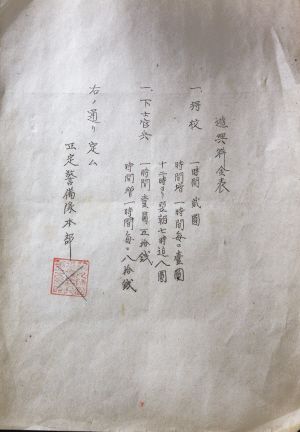 遊興料金表
一、将校 一時間 貳圓
時間増 一時間毎ニ壹圓
十二時ヨリ翌朝七時迠八圓
一、下士官兵 一時間 壹圓五拾戔
時間増 一時間毎ニ八拾戔
右ノ通リ定ム
正定警備隊本部